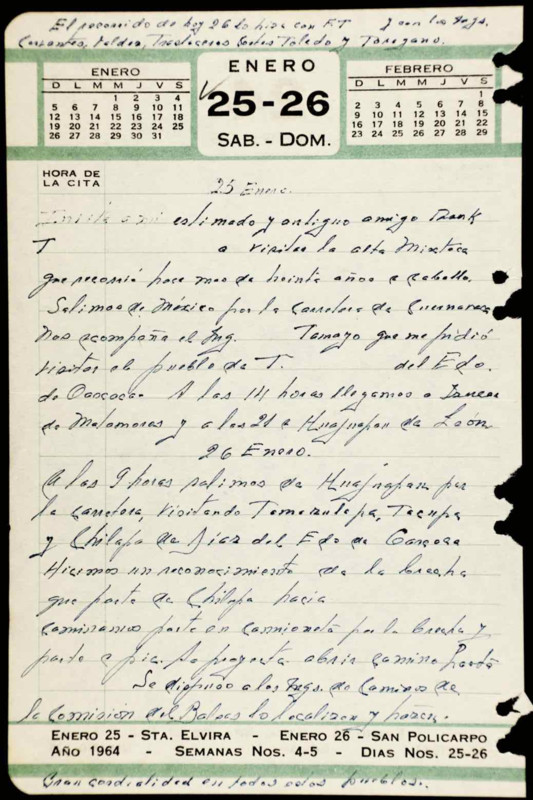 El recorrido de hoy 26 lo hice con F.T. y con los Ings.
Cervantes, Valdez, Carlos Toledo y
ENERO
D L M M J V S
1 2 3 4
5 6 7 8 9 10 11
12 13 14 15 16 17 18
19 20 21 22 23 24 25
26 27 28 29 30 31
ENERO
25-26
SAB. - DOM.
FEBRERO
D L M M J V S
1
2 3 4 5 6 7 8
9 10 11 12 13 14 15
16 17 18 19 20 21 22
23 24 25 26 27 28 29
HORA DE
LA CITA
25 Enero.
Invité a mi estimado y antiguo amigo Frank
T a visitar la alta Mixteca
que recorrió hace mas de treinta años a caballo.
Salimos de México por la carretera de Cuernavaca
Nos acompaña el Ing. Tamayo que me pidió
visitar el pueblo de T. del Edo.
de Oaxaca. A las 14 horas llegamos a Izucar
de Matamoros y a las 21 a Huajuapan de León
26 Enero.
A las 9 horas salimos de Huajuapan por
la carretera, visitando Tamazulapa, Tacupa
y Chilapa de Díaz del Edo de Oaxaca
Hicimos un reconocimiento de la brecha
que parte de Chilapa hacia
caminamos parte en camioneta por la brecha y
parte a pie. Se proyecta abrir camino
Se dispuso a los Ings. de Caminos de
la Comisión del Balsas lo localicen y hagan.
ENERO 25 - STA. ELVIRA - ENERO 26 - SAN POLICARPO
AÑO 1964 - SEMANAS NOS. 4-5 - DIAS NOS. 25-26
Gran cordialidad en todos estos pueblos.